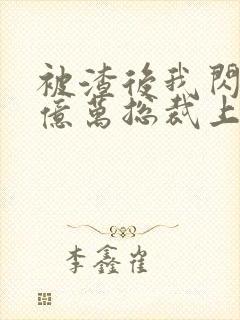 被渣後我閃
億萬總裁上
李鑫雀